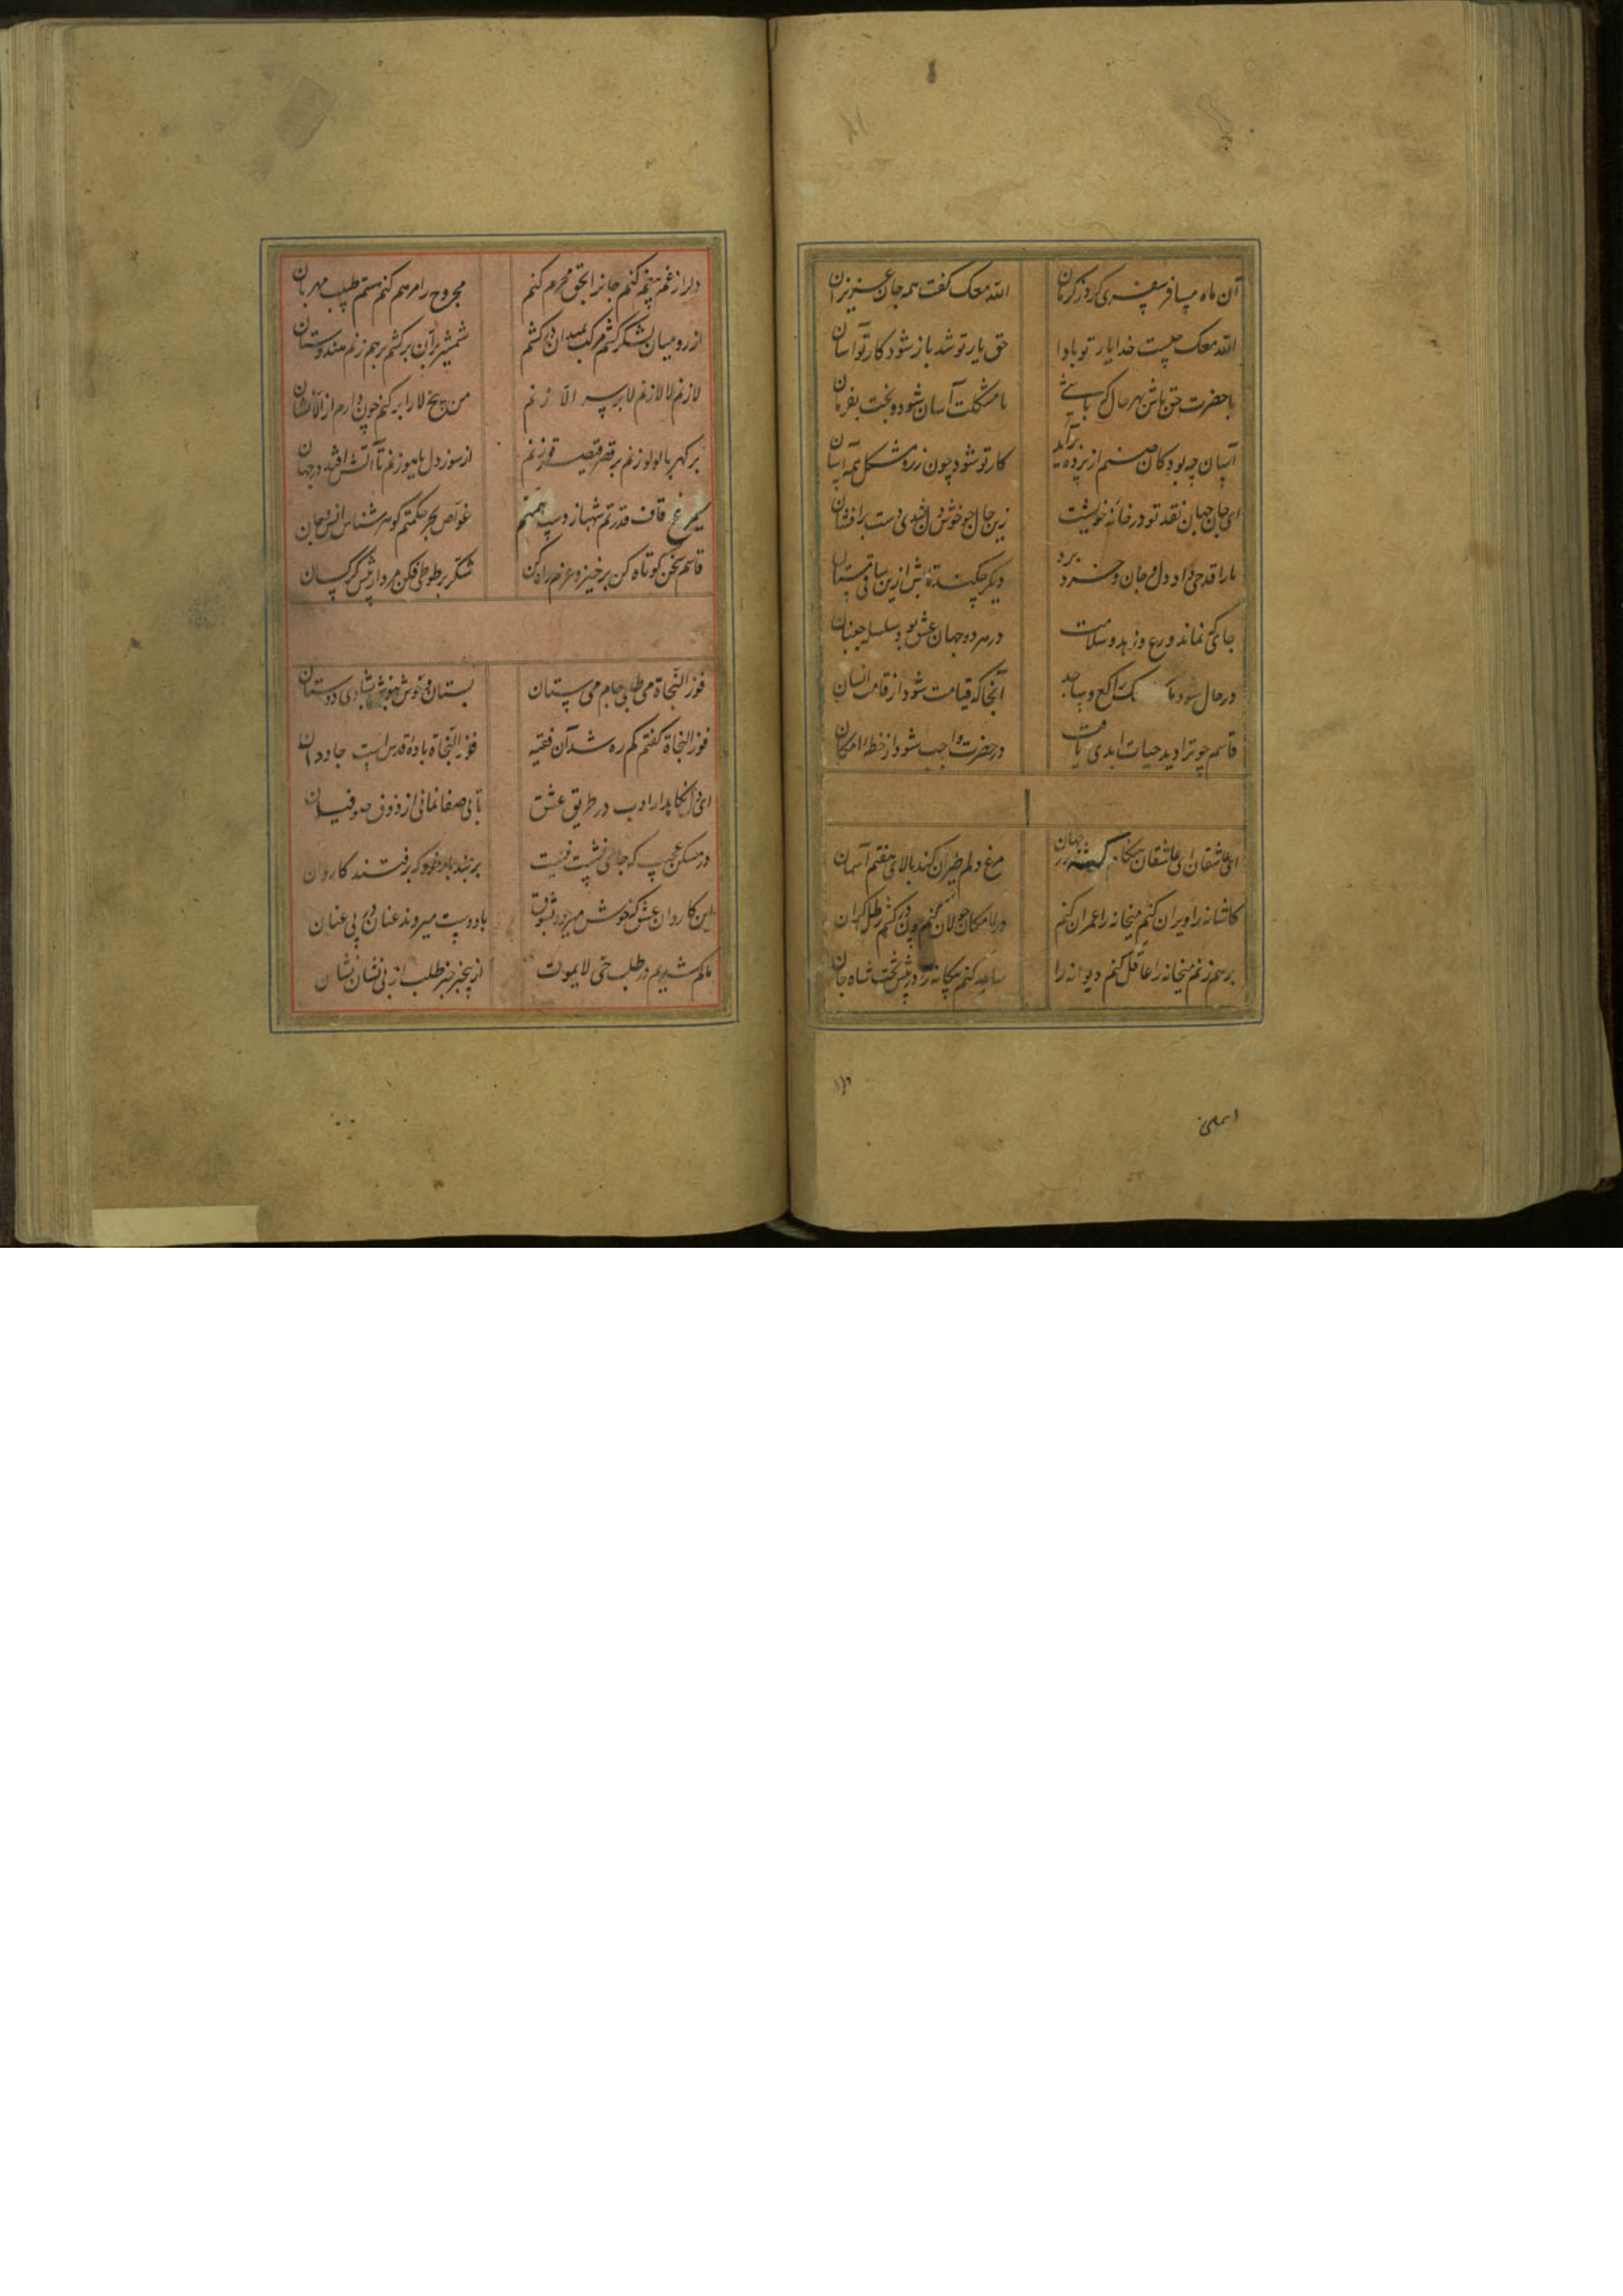 آن ماه مسافر سفری کرد ز کرمان
الله معک گفت همه جان عزیزان
الله معک چیست خدا یار تو بادا
حق یار تو شد باز شود کار تو آسان
با حضرت حق باش بهر حال که باشی
تا مشکلت آسان شود و بخت بفرمان
آسان چه بود کان صنم از پرده برآید
کار تو شود چون زر و مشکل همه آسان
ای جان جهان نقد تو در خانه خویشست
زین حال چو خوش دل شدی دست برافشان
ما را قدحی داد دل و جان و خرد برد
دیگر چکند تا پس ازین ساقی مستان
جای که نماند ورع و زهد و سلامت
در هر دو جهان عشق بود سلسله جنبان
در حال شود راکع و ساجد
آنجا که قیامت شود از قامت انسان
قاسم چو ترا دید حیات ابدی یافت
در حضرت واجب شود از خطه امکان
ای عاشقان ای عاشقان جهان
مرغ دلم طیران کند بالای هفتم آسمان
کاشانه را ویران کنم میخانه را عمران کنم
در لامکان جولان کنم چون در کشم رطل گران
برهم زنم میخانه را عاقل کنم دیوانه را
ساجد کنم در پیش تخت شاه جان
دل را ز غم بیغم کنم جان را بحق محرم کنم
مجروح را مرهم کنم هستم طبیب مهربان
از رومیان لشکر کشم مرکب بمیدان در کشم
شمشیر بران برکشم برهم زنم هندوستان
لا زنم لا لا زنم لا بر سر الا زنم
من بیخ لا را بر کنم چون دارم از الا نشان
بر کهربا لولو زنم بر قصر قیصر قو زنم
از سوز دل یاهو زنم تا آتش افتد در جهان
سیمرغ قاف قدرتم شهباز دست همتم
غواص بحر حکمتم گوهر شناس انس و جان
قاسم سخن کوتاه کن برخیز و عزم راه کن
شکر بر طوطی فکن مردار پیش کرکسان
فوز النجاة می طلبی جام می ستان
بستان و نوش بشادی دوستان
فوز النجاة گفتم گم ره شد آن فقیه
فوز النجاة باده قدس است جاودان
ای دل نگاهدار ادب در طریق عشق
تا بی صفا نمانی از ذوق صوفیان
در مسکن عجیب که جای نشست نیست
بربند بار خود که برفتند کاروان
این کاروان عشق که خوش میرود بشوق
با دوست میروند عنان در پی عنان
ما گم شدیم در طلب حی لا یموت
از بیخبر خبر طلب از بی نشان نشان